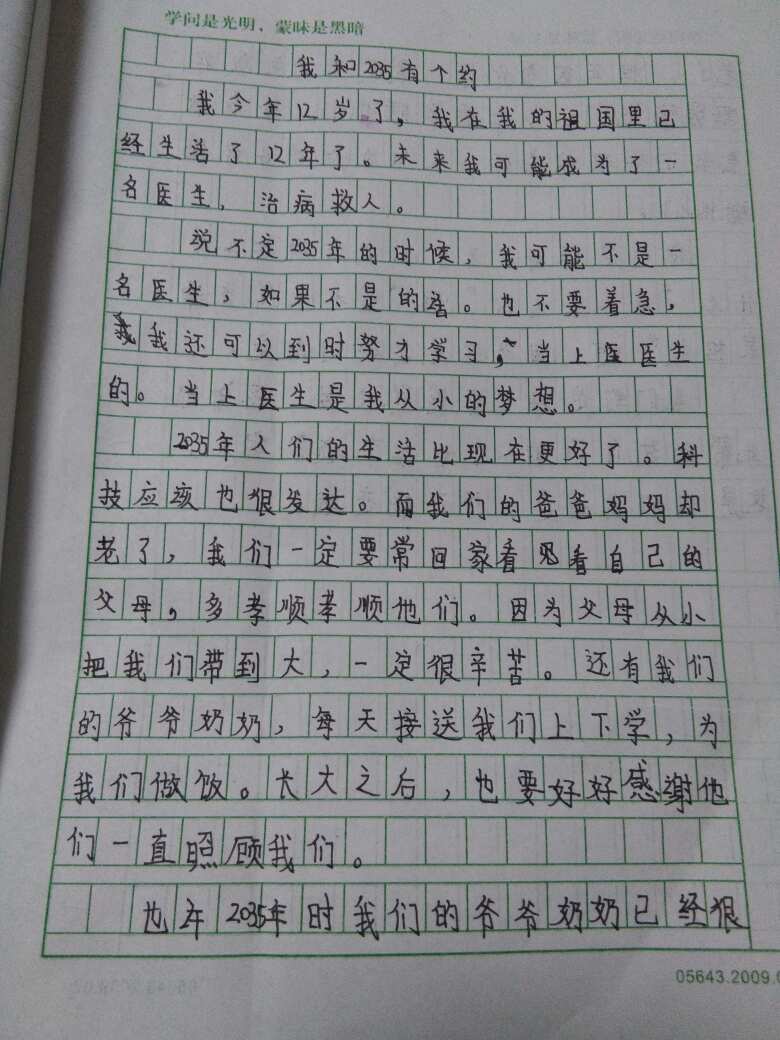 学问是光明，蒙昧是黑暗
我和2035有个约
我今年12岁了，我在我的祖国里已
经生活了12年了。未来我可能成为了一
名医生，治病救人。
说不定2035年的时候，我可能不是一
名医生，如果不是的话。也不要着急，
我还可以到时努力学习，当上医医生
的。当上医生是我从小的梦想。
2035年人们的生活比现在更好了。科
技应该也狠发达。而我们的爸爸妈妈却
老了，我们一定要常回家看见看自己的
父母，多孝顺孝顺他们。因为父母从小
把我们带到大，一定很辛苦。还有我们
的爷爷奶奶，每天接送我们上下学，为
我们做饭。长大之后，也要好好感谢他
们一直照顾我们。
也许2035年时我们的爷爷奶奶已经狠
05643.2009.0